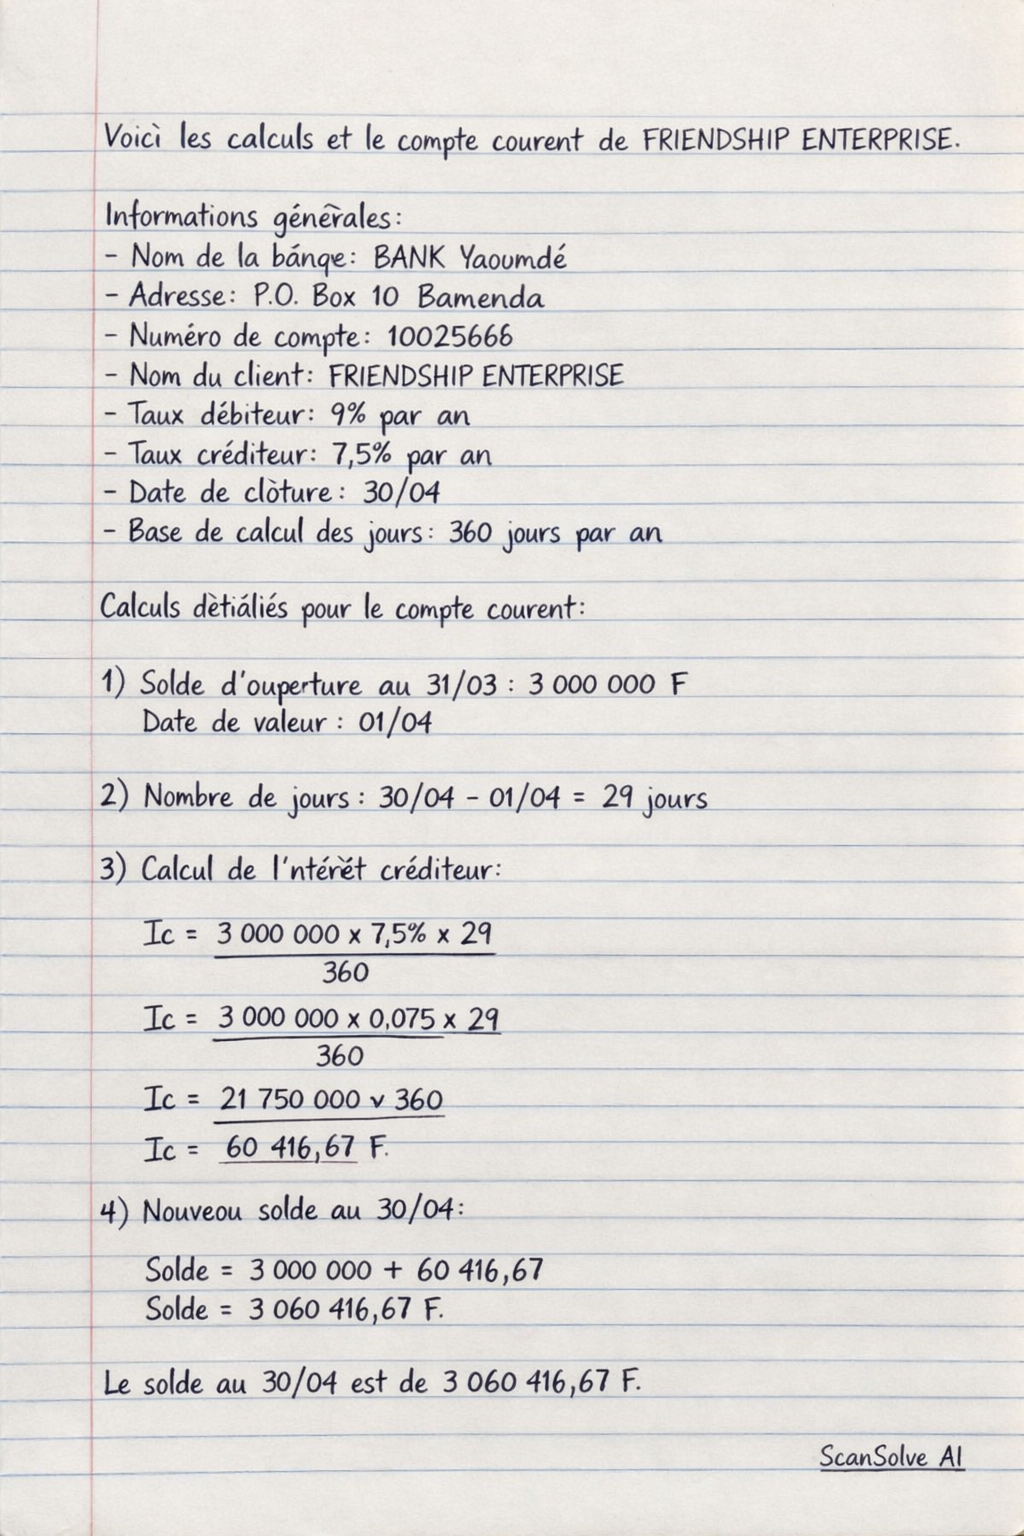 Voicì les calculs et le compte courent de FRIENDSHIP ENTERPRISE.
Informations générales:
- Nom de la bánqe: BANK Yaoumdé
- Adresse: P.O. Box 10 Bamenda
- Numéro de compte: 10025666
- Nom du client: FRIENDSHIP ENTERPRISE
- Taux débiteur: 9% par an
- Taux créditeur: 7,5% par an
- Date de clòture: 30/04
- Base de calcul des jours: 360 jours par an
Calculs dètiáliés pour le compte courent:
1) Solde d'ouperture au 31/03 : 3 000 000 F
Date de valeur : 01/04
2) Nombre de jours : 30/04 - 01/04 = 29 jours
3) Calcul de l'ntérét créditeur:
Ic = 3 000 000 x 7,5% x 29
360
Ic = 3 000 000 x 0,075 x 29
360
Ic = 21 750 000 v 360
Ic = 60 416,67 F.
4) Nouveou solde au 30/04:
Solde = 3 000 000 + 60 416,67
Solde = 3 060 416,67 F.
Le solde au 30/04 est de 3 060 416,67 F.
ScanSolve AI